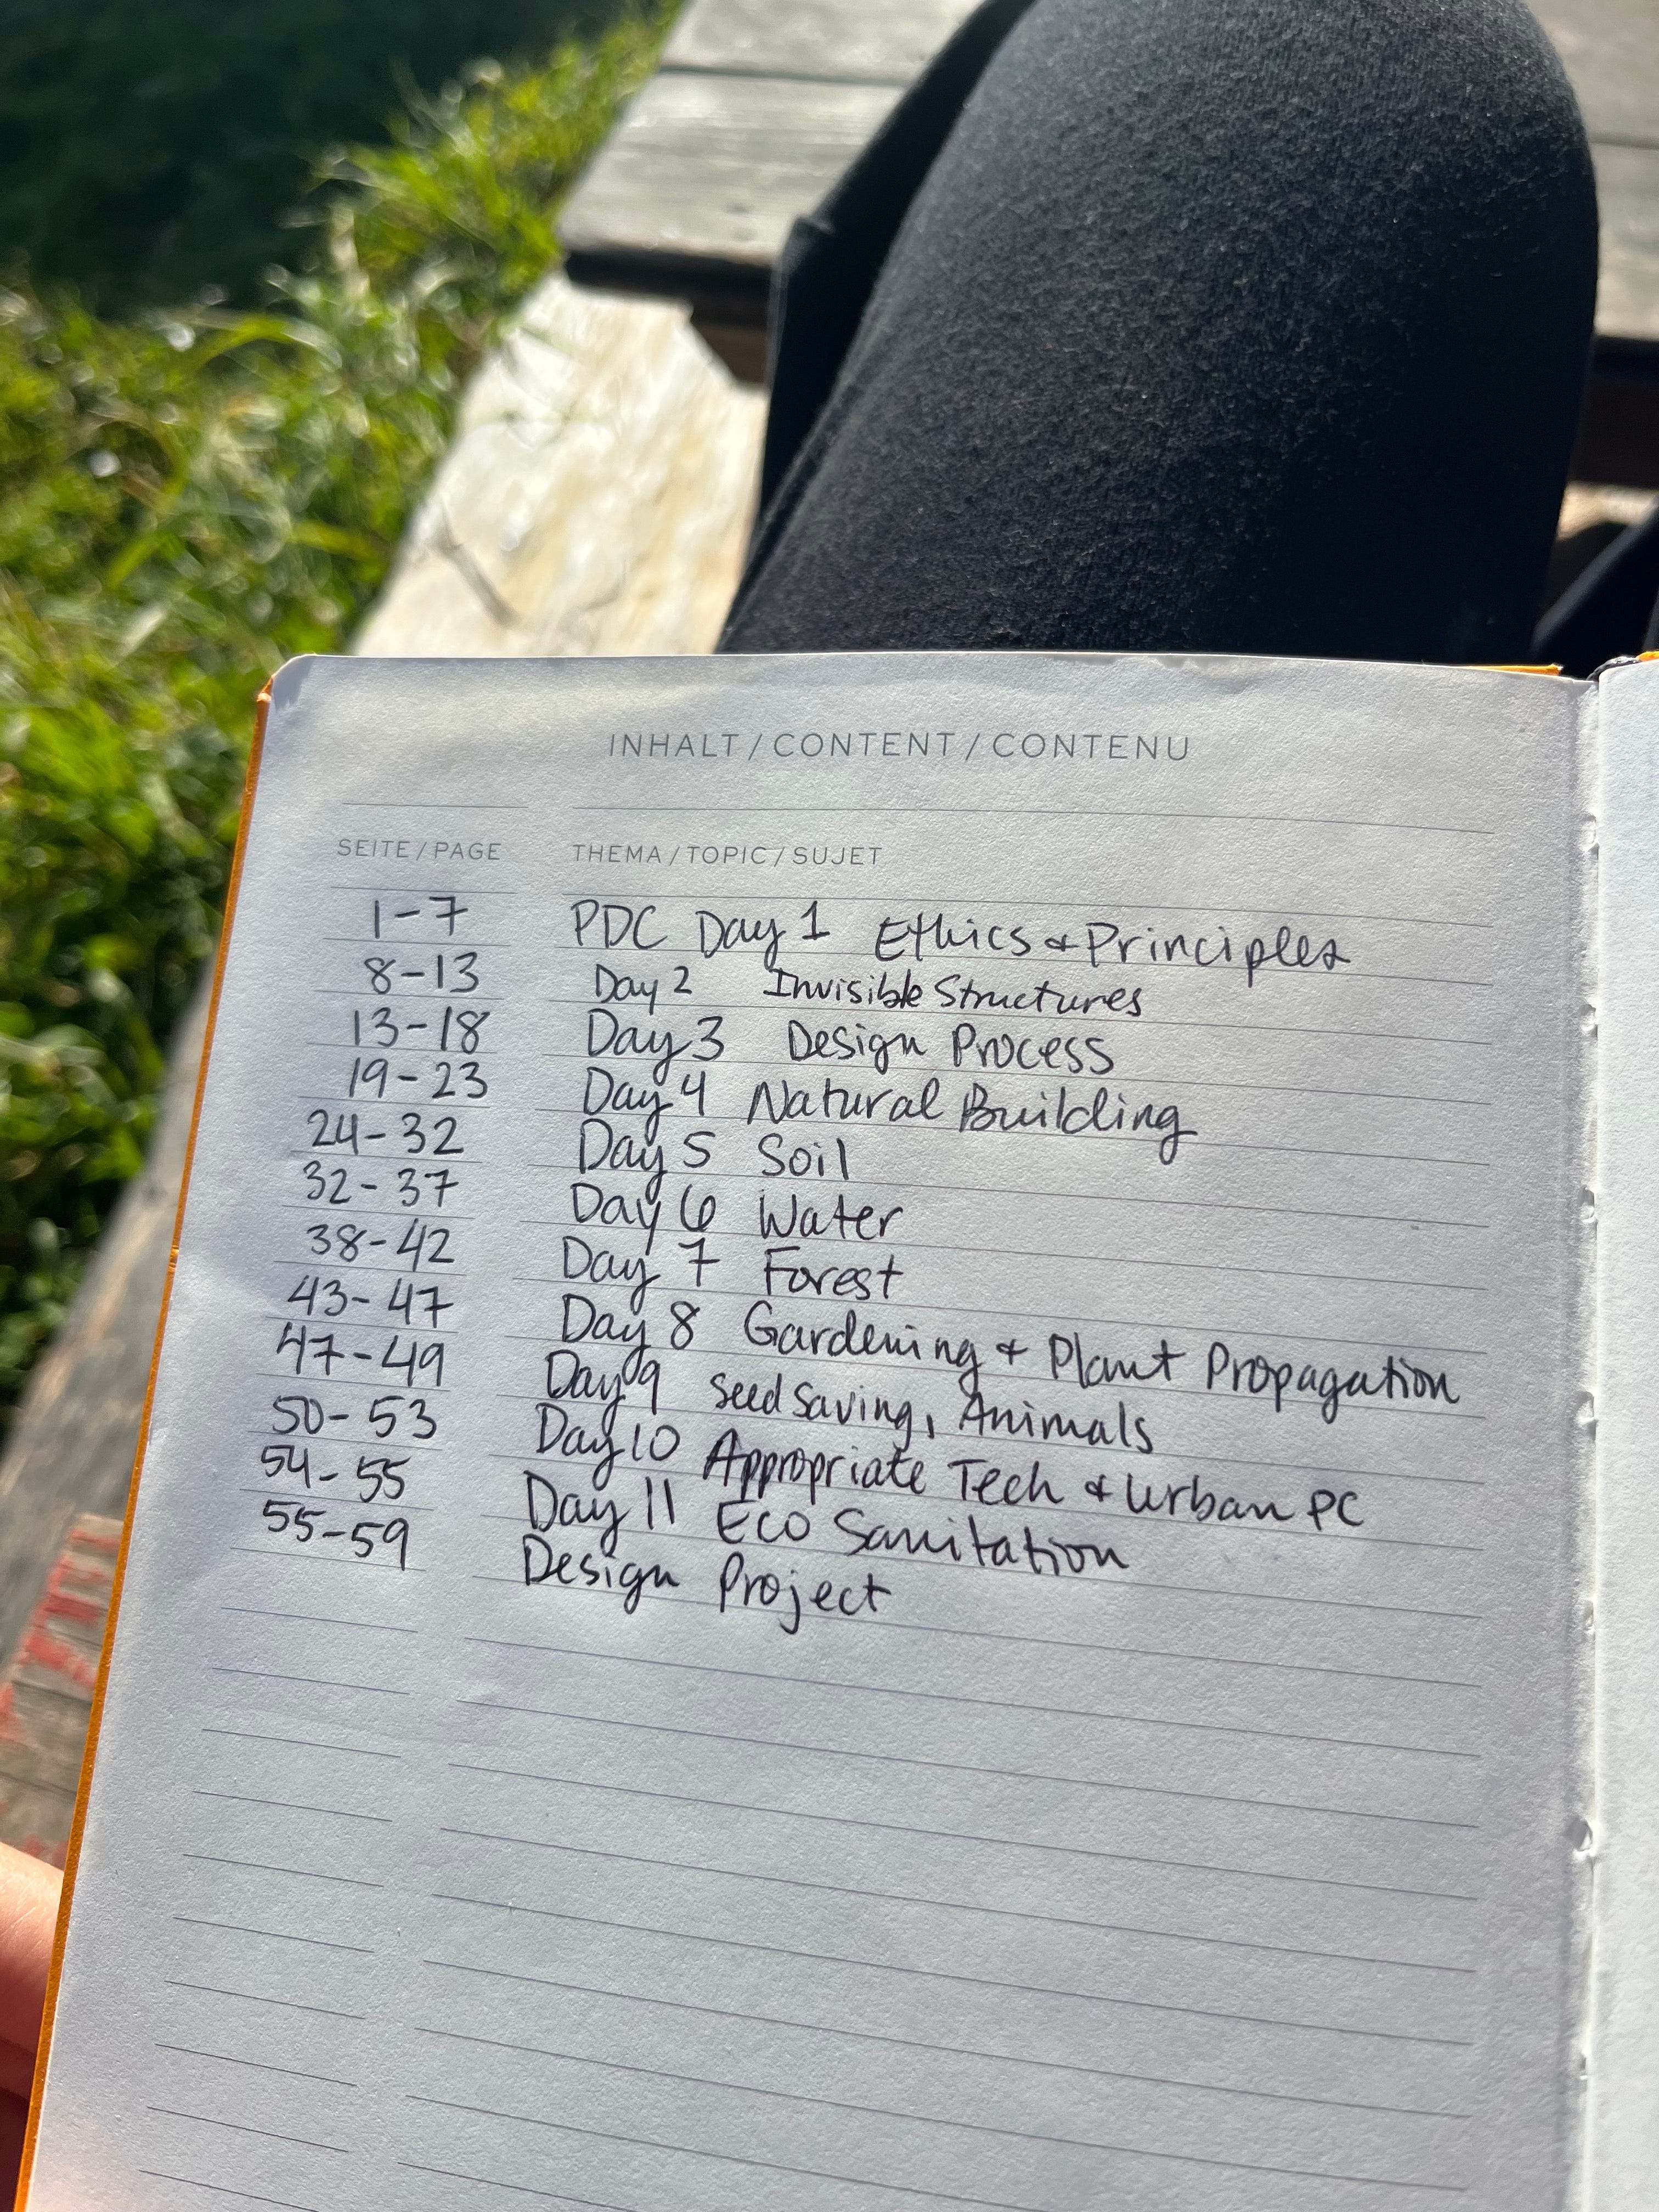 INHALT / CONTENT / CONTENU
SEITE / PAGE THEMA / TOPIC / SUJET
1-7 PDC Day 1 Ethics & Principles
8-13 Day 2 Invisible Structures
13-18 Day 3 Design Process
19-23 Day 4 Natural Building
24-32 Day 5 Soil
32-37 Day 6 Water
38-42 Day 7 Forest
43-47 Day 8 Gardening + Plant Propagation
47-49 Day 9 Seed Saving, Animals
50-53 Day 10 Appropriate Tech & Urban PC
54-55 Day 11 Eco Sanitation
55-59 Design Project